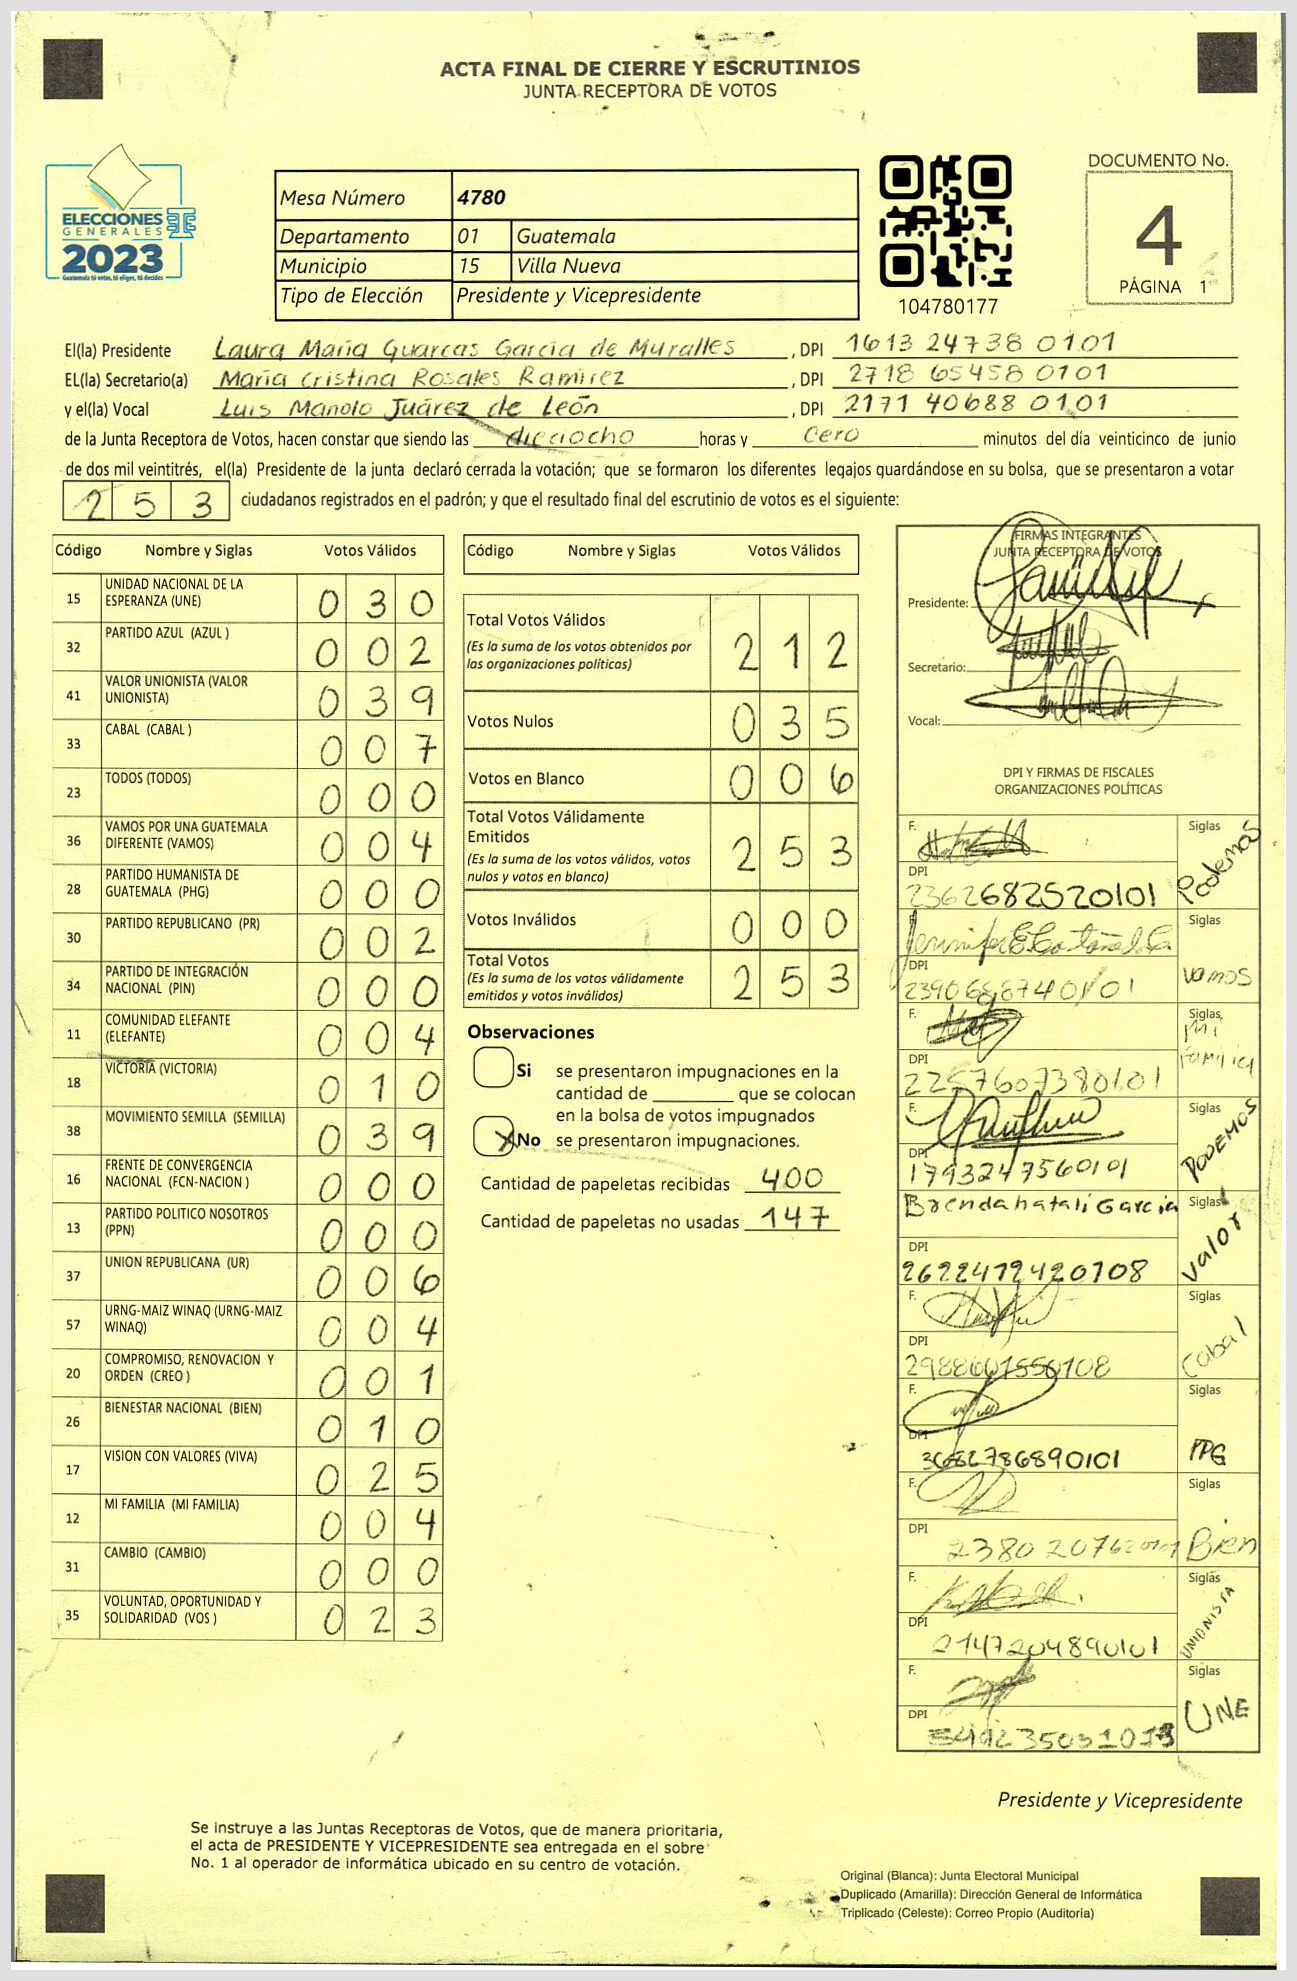 ACTA FINAL DE CIERRE Y ESCRUTINIOS
JUNTA RECEPTORA DE VOTOS
ELECCIONES
GENERALES
2023
Guatemala: tú votas, tú eliges, tú decides
Mesa Número 4780
Departamento 01 Guatemala
Municipio 15 Villa Nueva
Tipo de Elección Presidente y Vicepresidente
104780177
DOCUMENTO No.
4
PÁGINA 1
El(la) Presidente Laura María Guarcas García de Muralles, DPI 1613 24738 0101
EL(la) Secretario(a) María Cristina Rosales Ramírez, DPI 2718 65458 0101
y el(la) Vocal Luis Manolo Juárez de León, DPI 2171 40688 0101
de la Junta Receptora de Votos, hacen constar que siendo las dieciocho horas y cero minutos del día veinticinco de junio
de dos mil veintitrés, el(la) Presidente de la junta declaró cerrada la votación; que se formaron los diferentes legajos guardándose en su bolsa, que se presentaron a votar
253 ciudadanos registrados en el padrón; y que el resultado final del escrutinio de votos es el siguiente:
Código Nombre y Siglas Votos Válidos
15 UNIDAD NACIONAL DE LA ESPERANZA (UNE) 0 3 0
32 PARTIDO AZUL (AZUL ) 0 0 2
41 VALOR UNIONISTA (VALOR UNIONISTA) 0 3 9
33 CABAL (CABAL ) 0 0 7
23 TODOS (TODOS) 0 0 0
36 VAMOS POR UNA GUATEMALA DIFERENTE (VAMOS) 0 0 4
28 PARTIDO HUMANISTA DE GUATEMALA (PHG) 0 0 0
30 PARTIDO REPUBLICANO (PR) 0 0 2
34 PARTIDO DE INTEGRACIÓN NACIONAL (PIN) 0 0 0
11 COMUNIDAD ELEFANTE (ELEFANTE) 0 0 4
18 VICTORIA (VICTORIA) 0 1 0
38 MOVIMIENTO SEMILLA (SEMILLA) 0 3 9
16 FRENTE DE CONVERGENCIA NACIONAL (FCN-NACION ) 0 0 0
13 PARTIDO POLITICO NOSOTROS (PPN) 0 0 0
37 UNION REPUBLICANA (UR) 0 0 6
57 URNG-MAIZ WINAQ (URNG-MAIZ WINAQ) 0 0 4
20 COMPROMISO, RENOVACION Y ORDEN (CREO ) 0 0 1
26 BIENESTAR NACIONAL (BIEN) 0 1 0
17 VISION CON VALORES (VIVA) 0 2 5
12 MI FAMILIA (MI FAMILIA) 0 0 4
31 CAMBIO (CAMBIO) 0 0 0
35 VOLUNTAD, OPORTUNIDAD Y SOLIDARIDAD (VOS ) 0 2 3
Código Nombre y Siglas Votos Válidos
Total Votos Válidos 2 1 2
(Es la suma de los votos obtenidos por
las organizaciones políticas)
Votos Nulos 0 3 5
Votos en Blanco 0 0 6
Total Votos Válidamente
Emitidos 2 5 3
(Es la suma de los votos válidos, votos
nulos y votos en blanco)
Votos Inválidos 0 0 0
Total Votos 2 5 3
(Es la suma de los votos válidamente
emitidos y votos inválidos)
Observaciones
Si se presentaron impugnaciones en la
cantidad de ________ que se colocan
en la bolsa de votos impugnados
X No se presentaron impugnaciones.
Cantidad de papeletas recibidas 400
Cantidad de papeletas no usadas 147
FIRMAS INTEGRANTES
JUNTA RECEPTORA DE VOTOS
Presidente:
Secretario:
Vocal:
DPI Y FIRMAS DE FISCALES
ORGANIZACIONES POLÍTICAS
F. Siglas Podemos
DPI 2362682520101
Siglas Vamos
DPI 2390688740101
F. Siglas Mi Familia
DPI 2257607380101
F. Siglas PODEMOS
DPI 1793247560101
Brenda Natali Garcia Siglas Valor
DPI 2622472420108
F. Siglas Cabal
DPI
F. Siglas
DPI
F. Siglas Bien
DPI
F. Siglas UNIONISTA
DPI 2147204890101
F. Siglas UNE
DPI
Presidente y Vicepresidente
Se instruye a las Juntas Receptoras de Votos, que de manera prioritaria,
el acta de PRESIDENTE Y VICEPRESIDENTE sea entregada en el sobre
No. 1 al operador de informática ubicado en su centro de votación.
Original (Blanca): Junta Electoral Municipal
Duplicado (Amarilla): Dirección General de Informática
Triplicado (Celeste): Correo Propio (Auditoría)